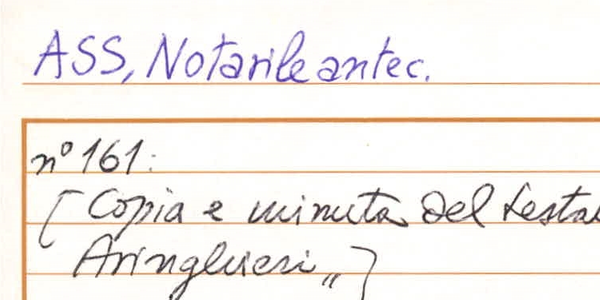 ASS, Notarile antec.
n° 161:
[Copia e minuta del testa
Aringhieri „]